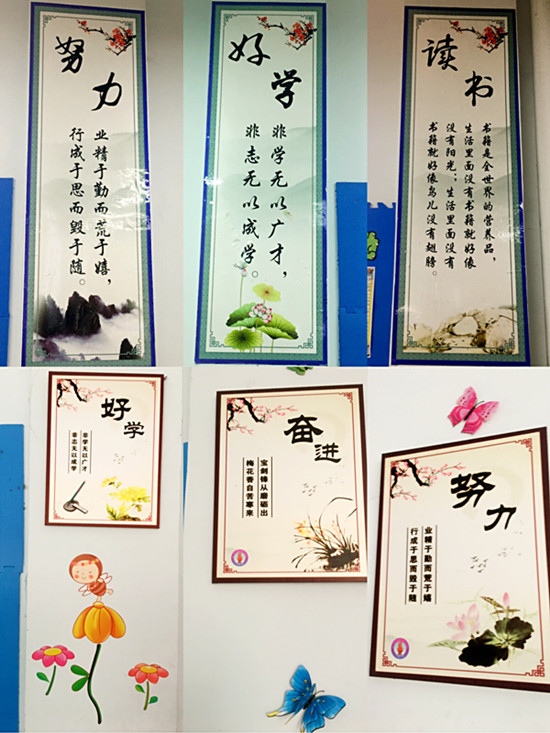 努力
业精于勤而荒于嬉，
行成于思而毁于随。
好学
非学无以广才，
非志无以成学。
读书
书籍是全世界的营养品，
生活里面没有书籍就好像
没有阳光；生活里面没有
书籍就好像鸟儿没有翅膀。
好学
非学无以广才
非志无以成学
奋进
宝剑锋从磨砺出
梅花香自苦寒来
努力
业精于勤而荒于嬉
行成于思而毁于随